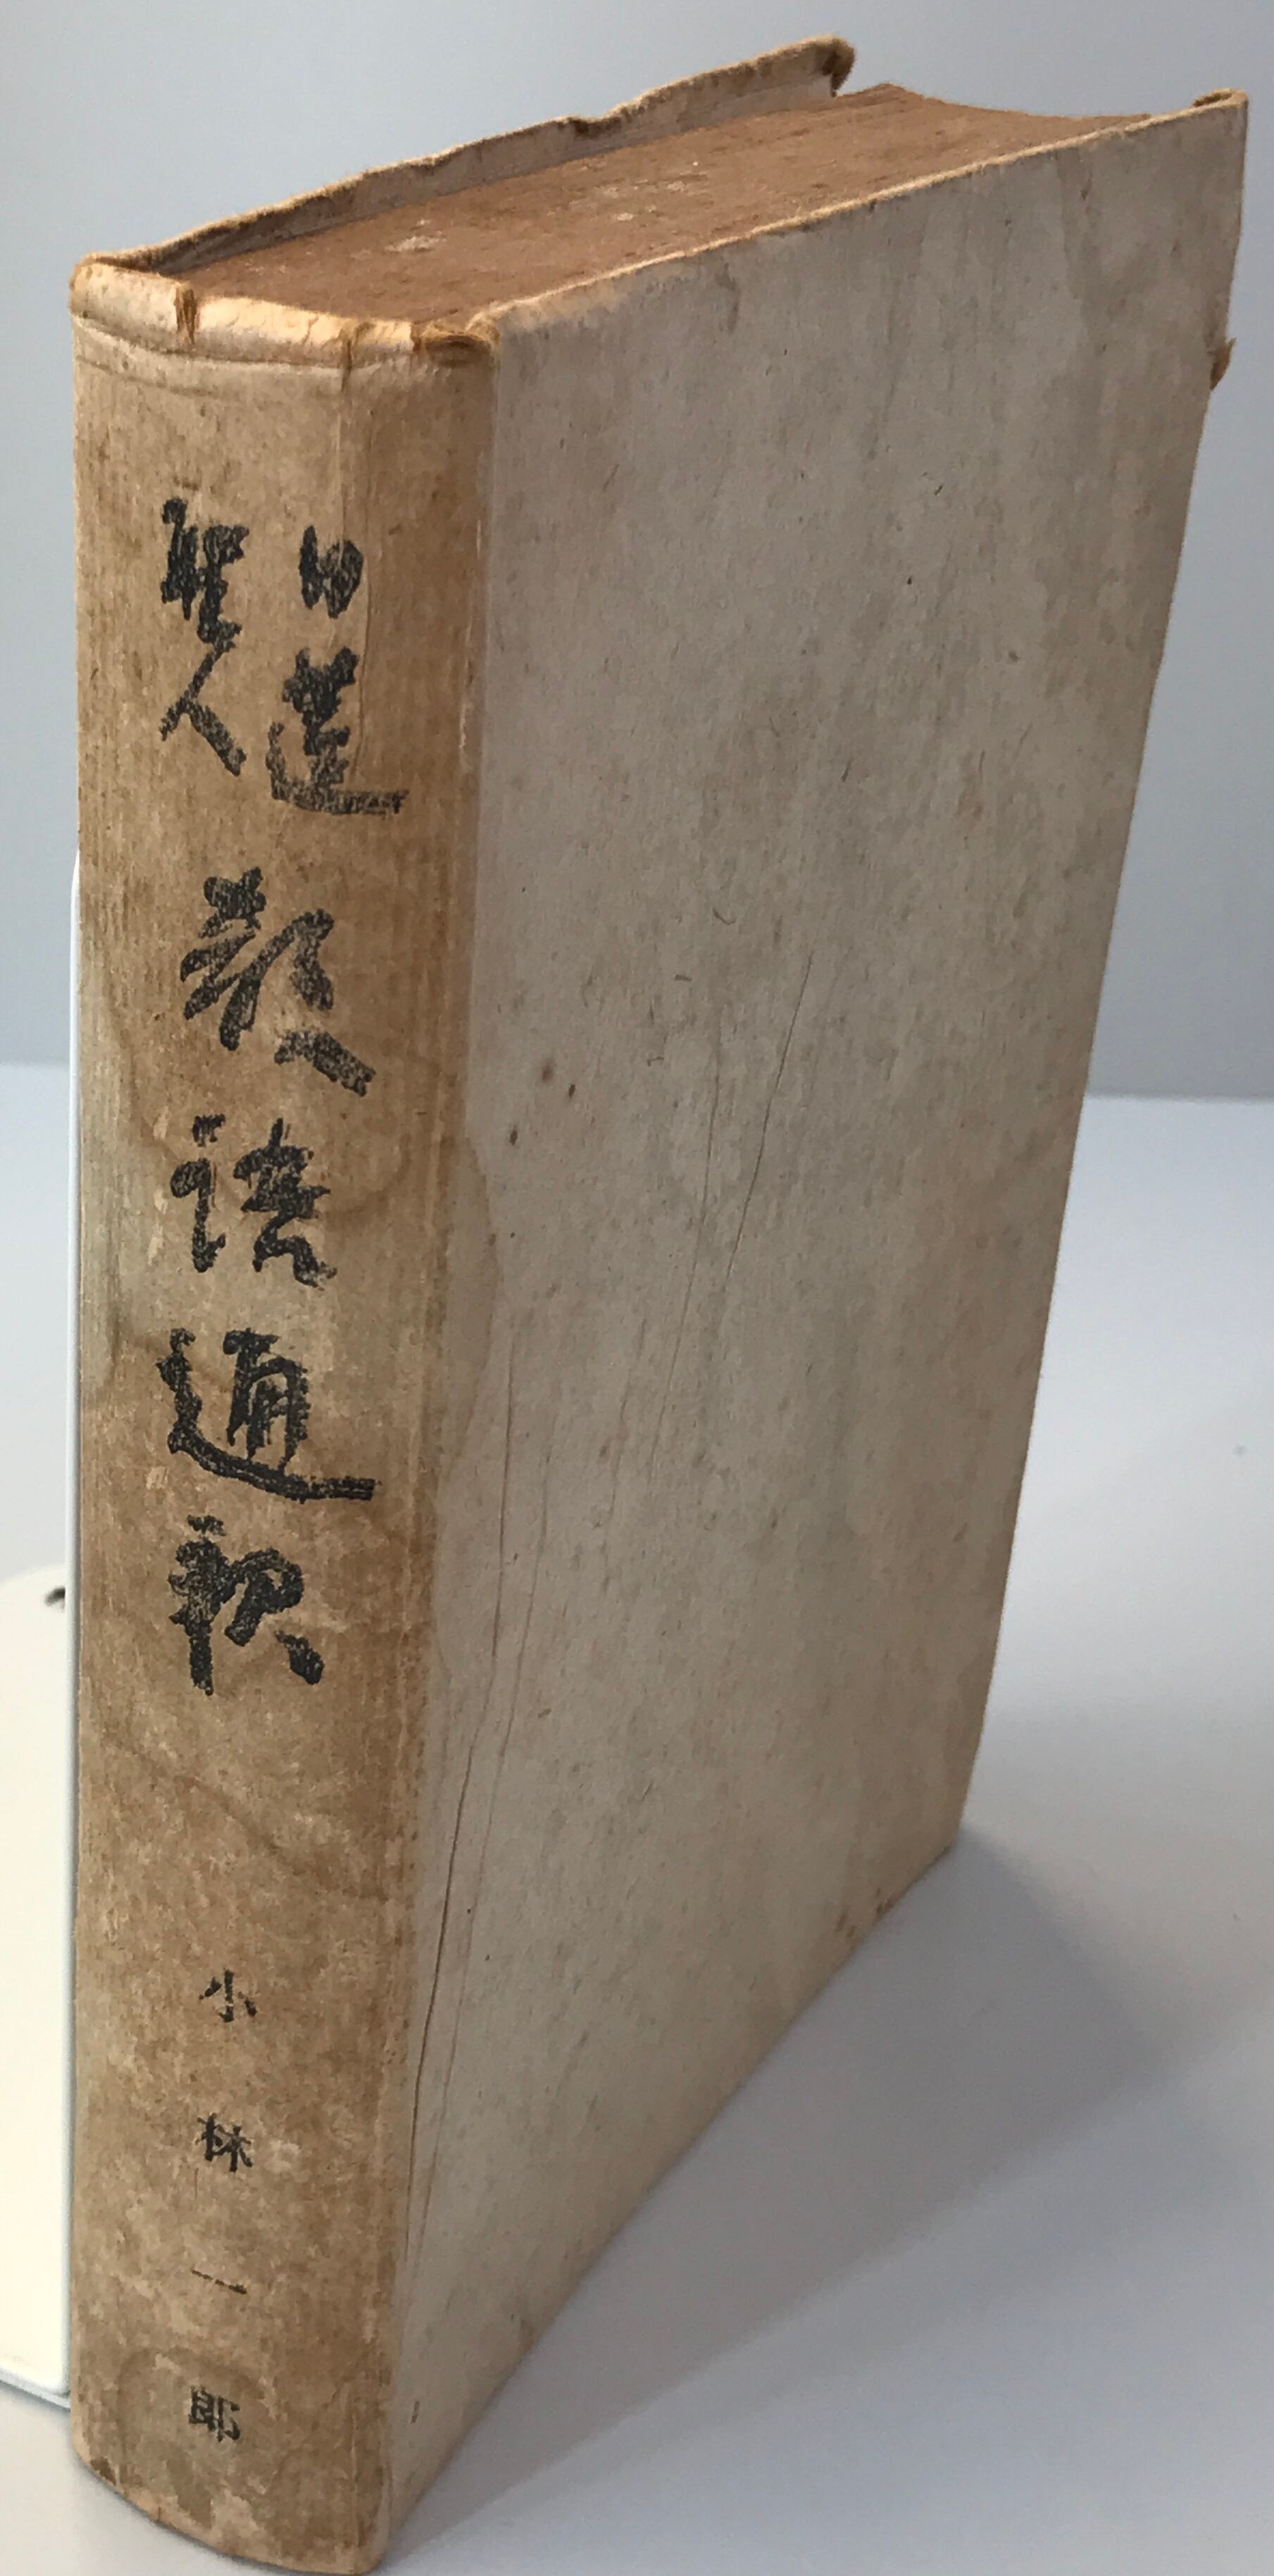 日蓮
聖人
教語通釈
小林一郎